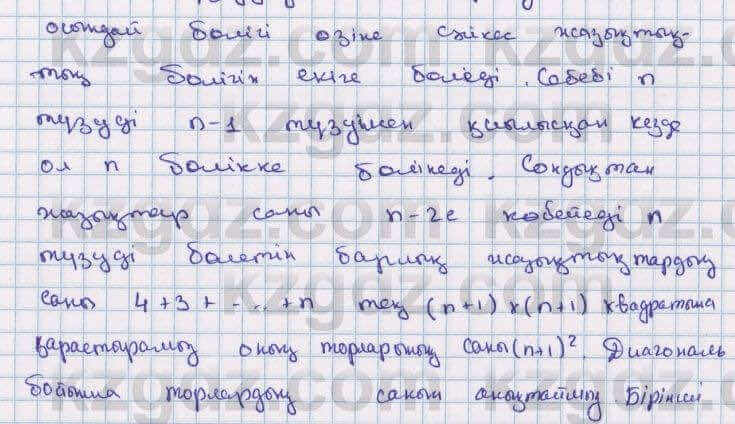 осындай бөлігі өзіне сәйкес жазықтық-
тың бөлігін екіге бөледі. Себебі n
түзуді n-1 түзумен қиылысқан кезде
ол n бөлікке бөлінеді. Сондықтан
жазықтар саны n-2е көбейеді n
түзуді бөлетін барлық жазықтықтардың
саны 4+3+-...+n тең (n+1)×(n+1) квадратына
қарастырамыз оның торларының саны (n+1)². Диагональ
бойынша торлардың санын анықтаймыз. Бірінші
kzgdz.com kzgdz.com